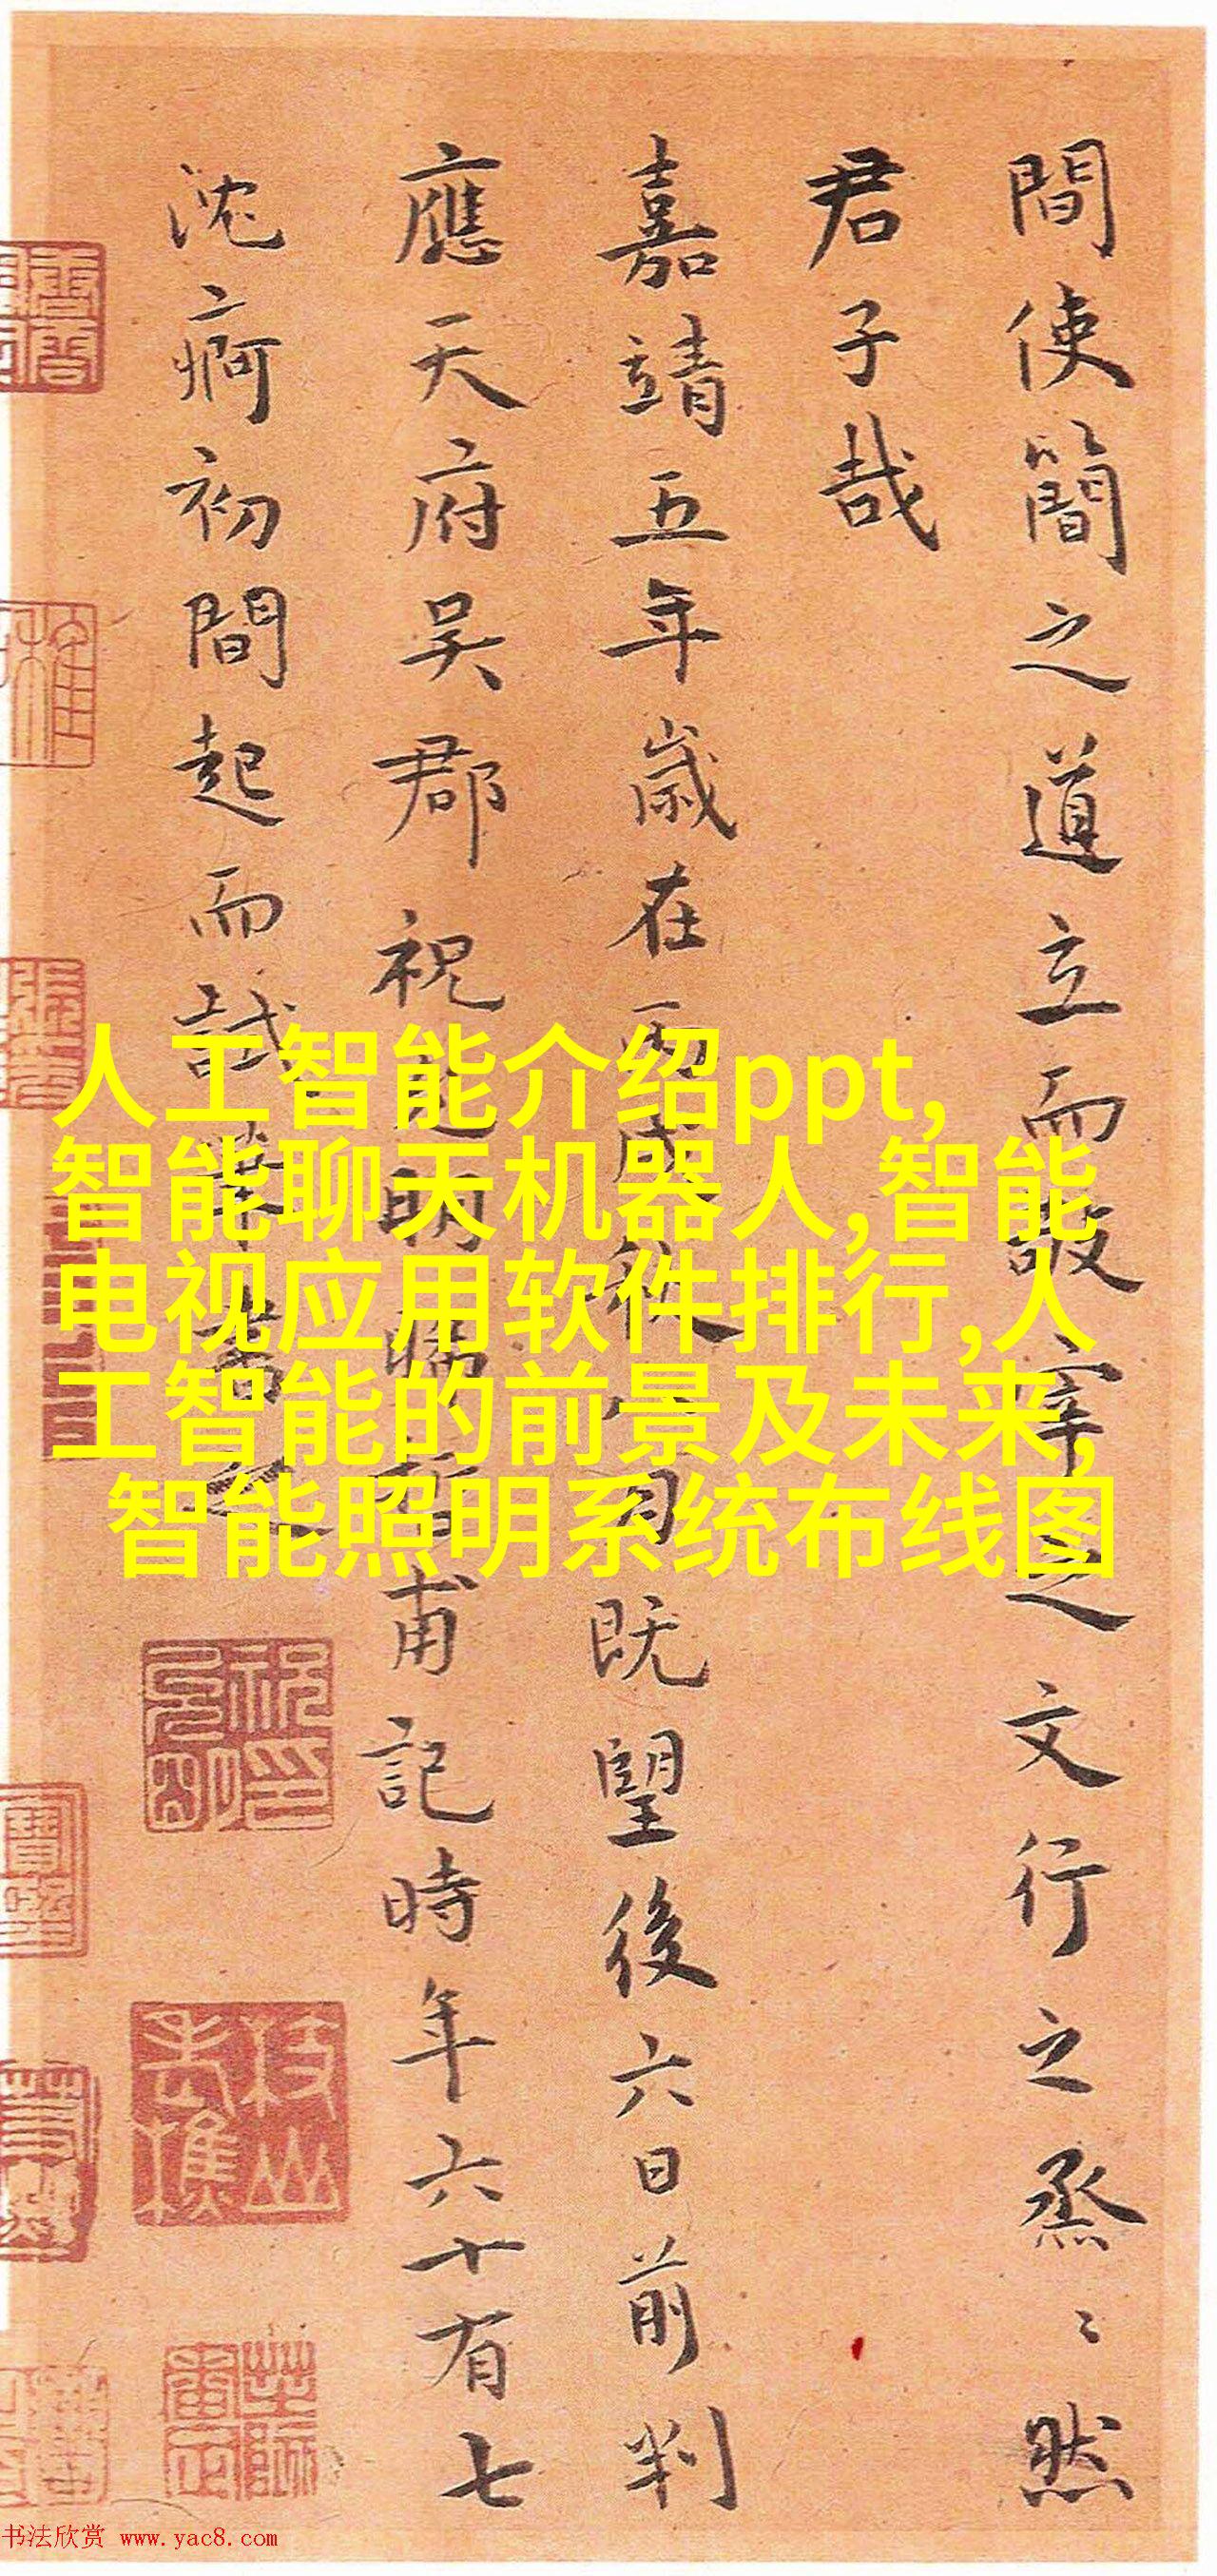 間使簡之道立而敬宰之文行之烝〻然
君子哉
嘉靖五年歲在丙戌秋八月既望後六日前判
應天府吴郡祝允明晞哲甫記時年六十有七
沈痾初間起而試筆書之
人工智能介绍ppt,
智能聊天机器人,智能
电视应用软件排行,人
工智能的前景及未来,
智能照明系统布线图
书法欣赏 www.yac8.com